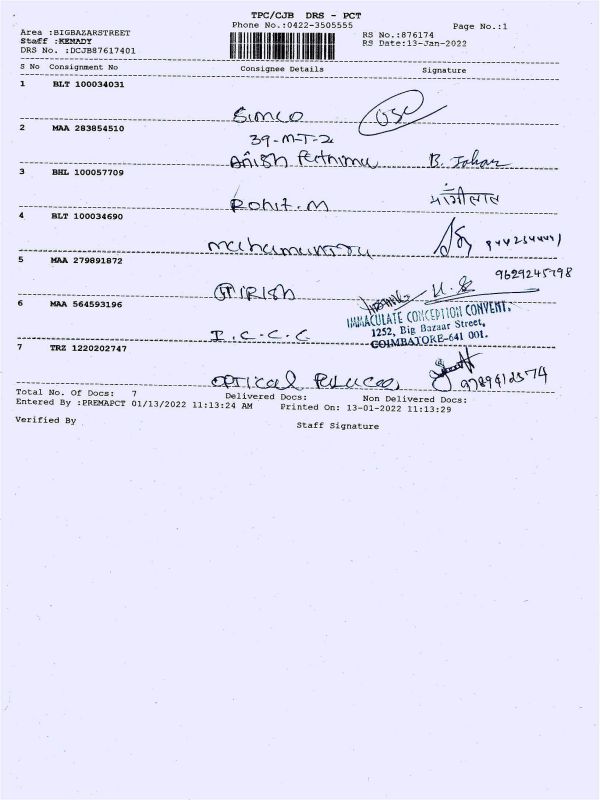 TPC/CJB DRS - PCT
Phone No.:0422-3505555
Page No.:1
Area :BIGBAZARSTREET
RS No.:876174
Staff :KEMADY
RS Date:13-Jan-2022
DRS No. :DCJB87617401
S No Consignment No Consignee Details Signature
1 BLT 100034031
Simco
2 MAA 283854510
39-M-T-2
Anish
B.
3 BHL 100057709
Rohit. M
मांगीलाल
4 BLT 100034690
5 MAA 279891872
9629245798
GIRISH
6 MAA 564593196
IMMACULATE CONCEPTION CONVENT,
1252, Big Bazaar Street,
I.C.C.C
COIMBATORE-641 001.
7 TRZ 1220202747
OPTICAL
Total No. Of Docs: 7 Delivered Docs: Non Delivered Docs:
Entered By :PREMAPCT 01/13/2022 11:13:24 AM Printed On: 13-01-2022 11:13:29
Verified By Staff Signature